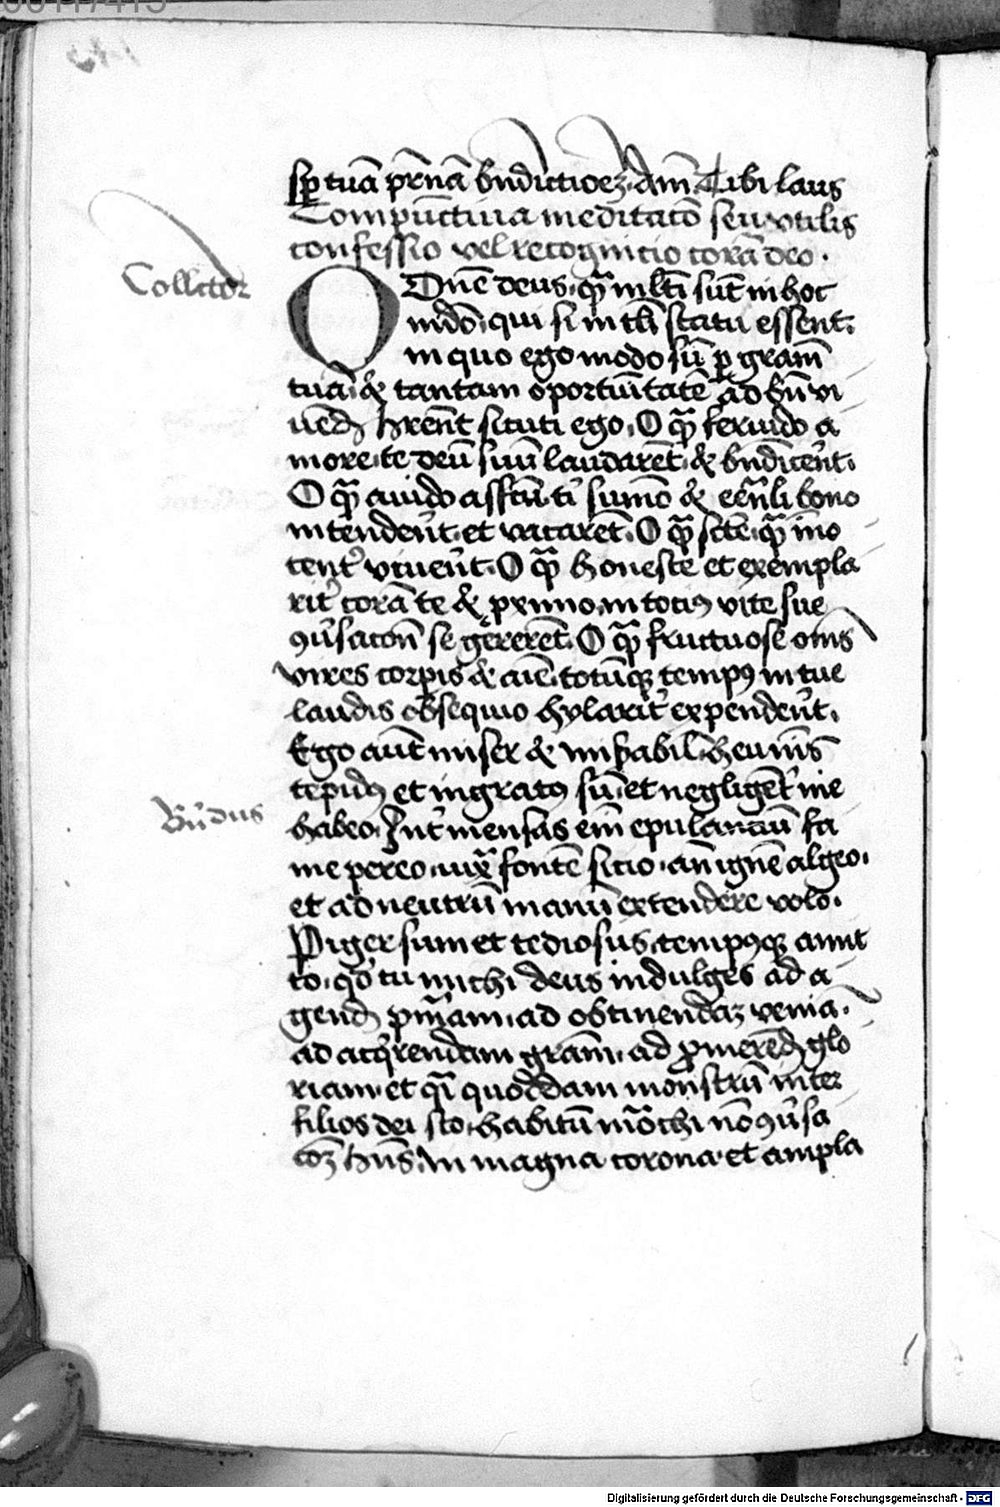 sp tuā pr̄nā bn̄dictioeʒ. Am̄. Tibi laus
Compūctiua meditatō seu vtilis
confessio vel recognitio corā deo.
Collector
O Dn̄e deus qͣ ml̄ti sūt in hoc
mūdo, qui si in tali statu essent
in quo ego modo sū p gram̄
tuā, & tantam oportūitatē ad bn̄ vi
uēdi hrēnt sicuti ego. O qͣ feruido a
more te deū suū laudarēt & bn̄dicēnt.
O qͣ auido affctū ti sūmo & eternͣli bono
intenderent et vacarēt. O qͣ scte qͣ īno
center viuerēt. O qͣ honeste et exempla
rit corā te & pximo in totiꝰ vite sue
ꝯuersatōn se gererēt. O qͣ fructuose om̄s
vires corpis & aīe totūqꝫ tempꝰ in tue
laudis obsequio hylarit expenderēt.
Ego aūt miser & misabil heu nimis
tepidꝰ et ingratꝰ sū et negligēt me
Bn̄dus
habeo. Int mensas em̄ epulantiū fa
me pereo. iuxͣ fontē sitio. añ ignē algeo.
et ad neutrū manū extendere volo.
Piger sum et tediosus. tempꝰqꝫ amit
to. qͦd tu michi deus indulges ad a
gendā pn̄iam. ad obtinendaʒ veniā.
ad acqͥrendam grām. ad ꝓmerēdā glo
riam. et qͣi quoddam monstrū inter
filios dei sto. habitū mōchi nō ꝯuersa
toʒ hn̄s. In magna corona et ampla
Digitalisierung gefördert durch die Deutsche Forschungsgemeinschaft - DFG